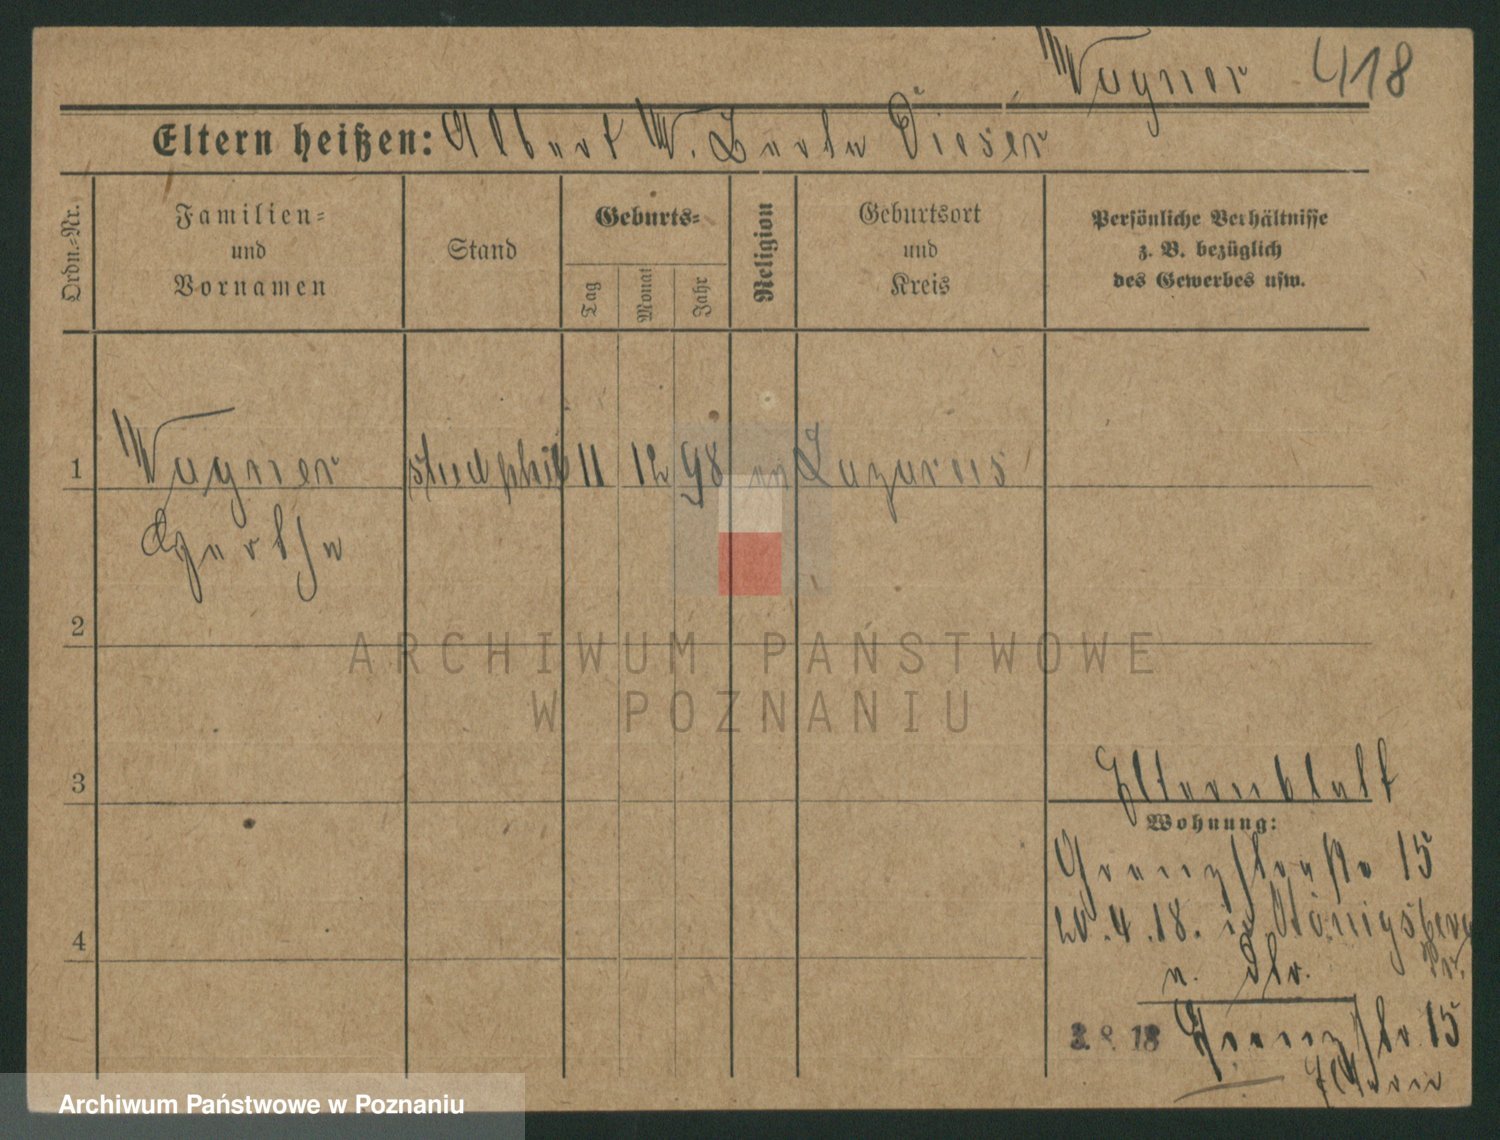 Wagner 418
Eltern heißen: Albert W. Berta Dieser
Ordn.-Nr.
Familien-
und
Vornamen
Stand
Geburts-
Tag
Monat
Jahr
Religion
Geburtsort
und
Kreis
Persönliche Verhältnisse
z. B. bezüglich
des Gewerbes usw.
1 Wagner stud phil 11 12 98 in Lazarus
Gertha
2
ARCHIWUM PAŃSTWOWE
W POZNANIU
3
Elternblatt
Wohnung:
Grenzstraße 15
20.4.18. in Königsberg
Pr.
4
n. Str.
3.8.18 Grenzstr 15
Eltern
Archiwum Państwowe w Poznaniu